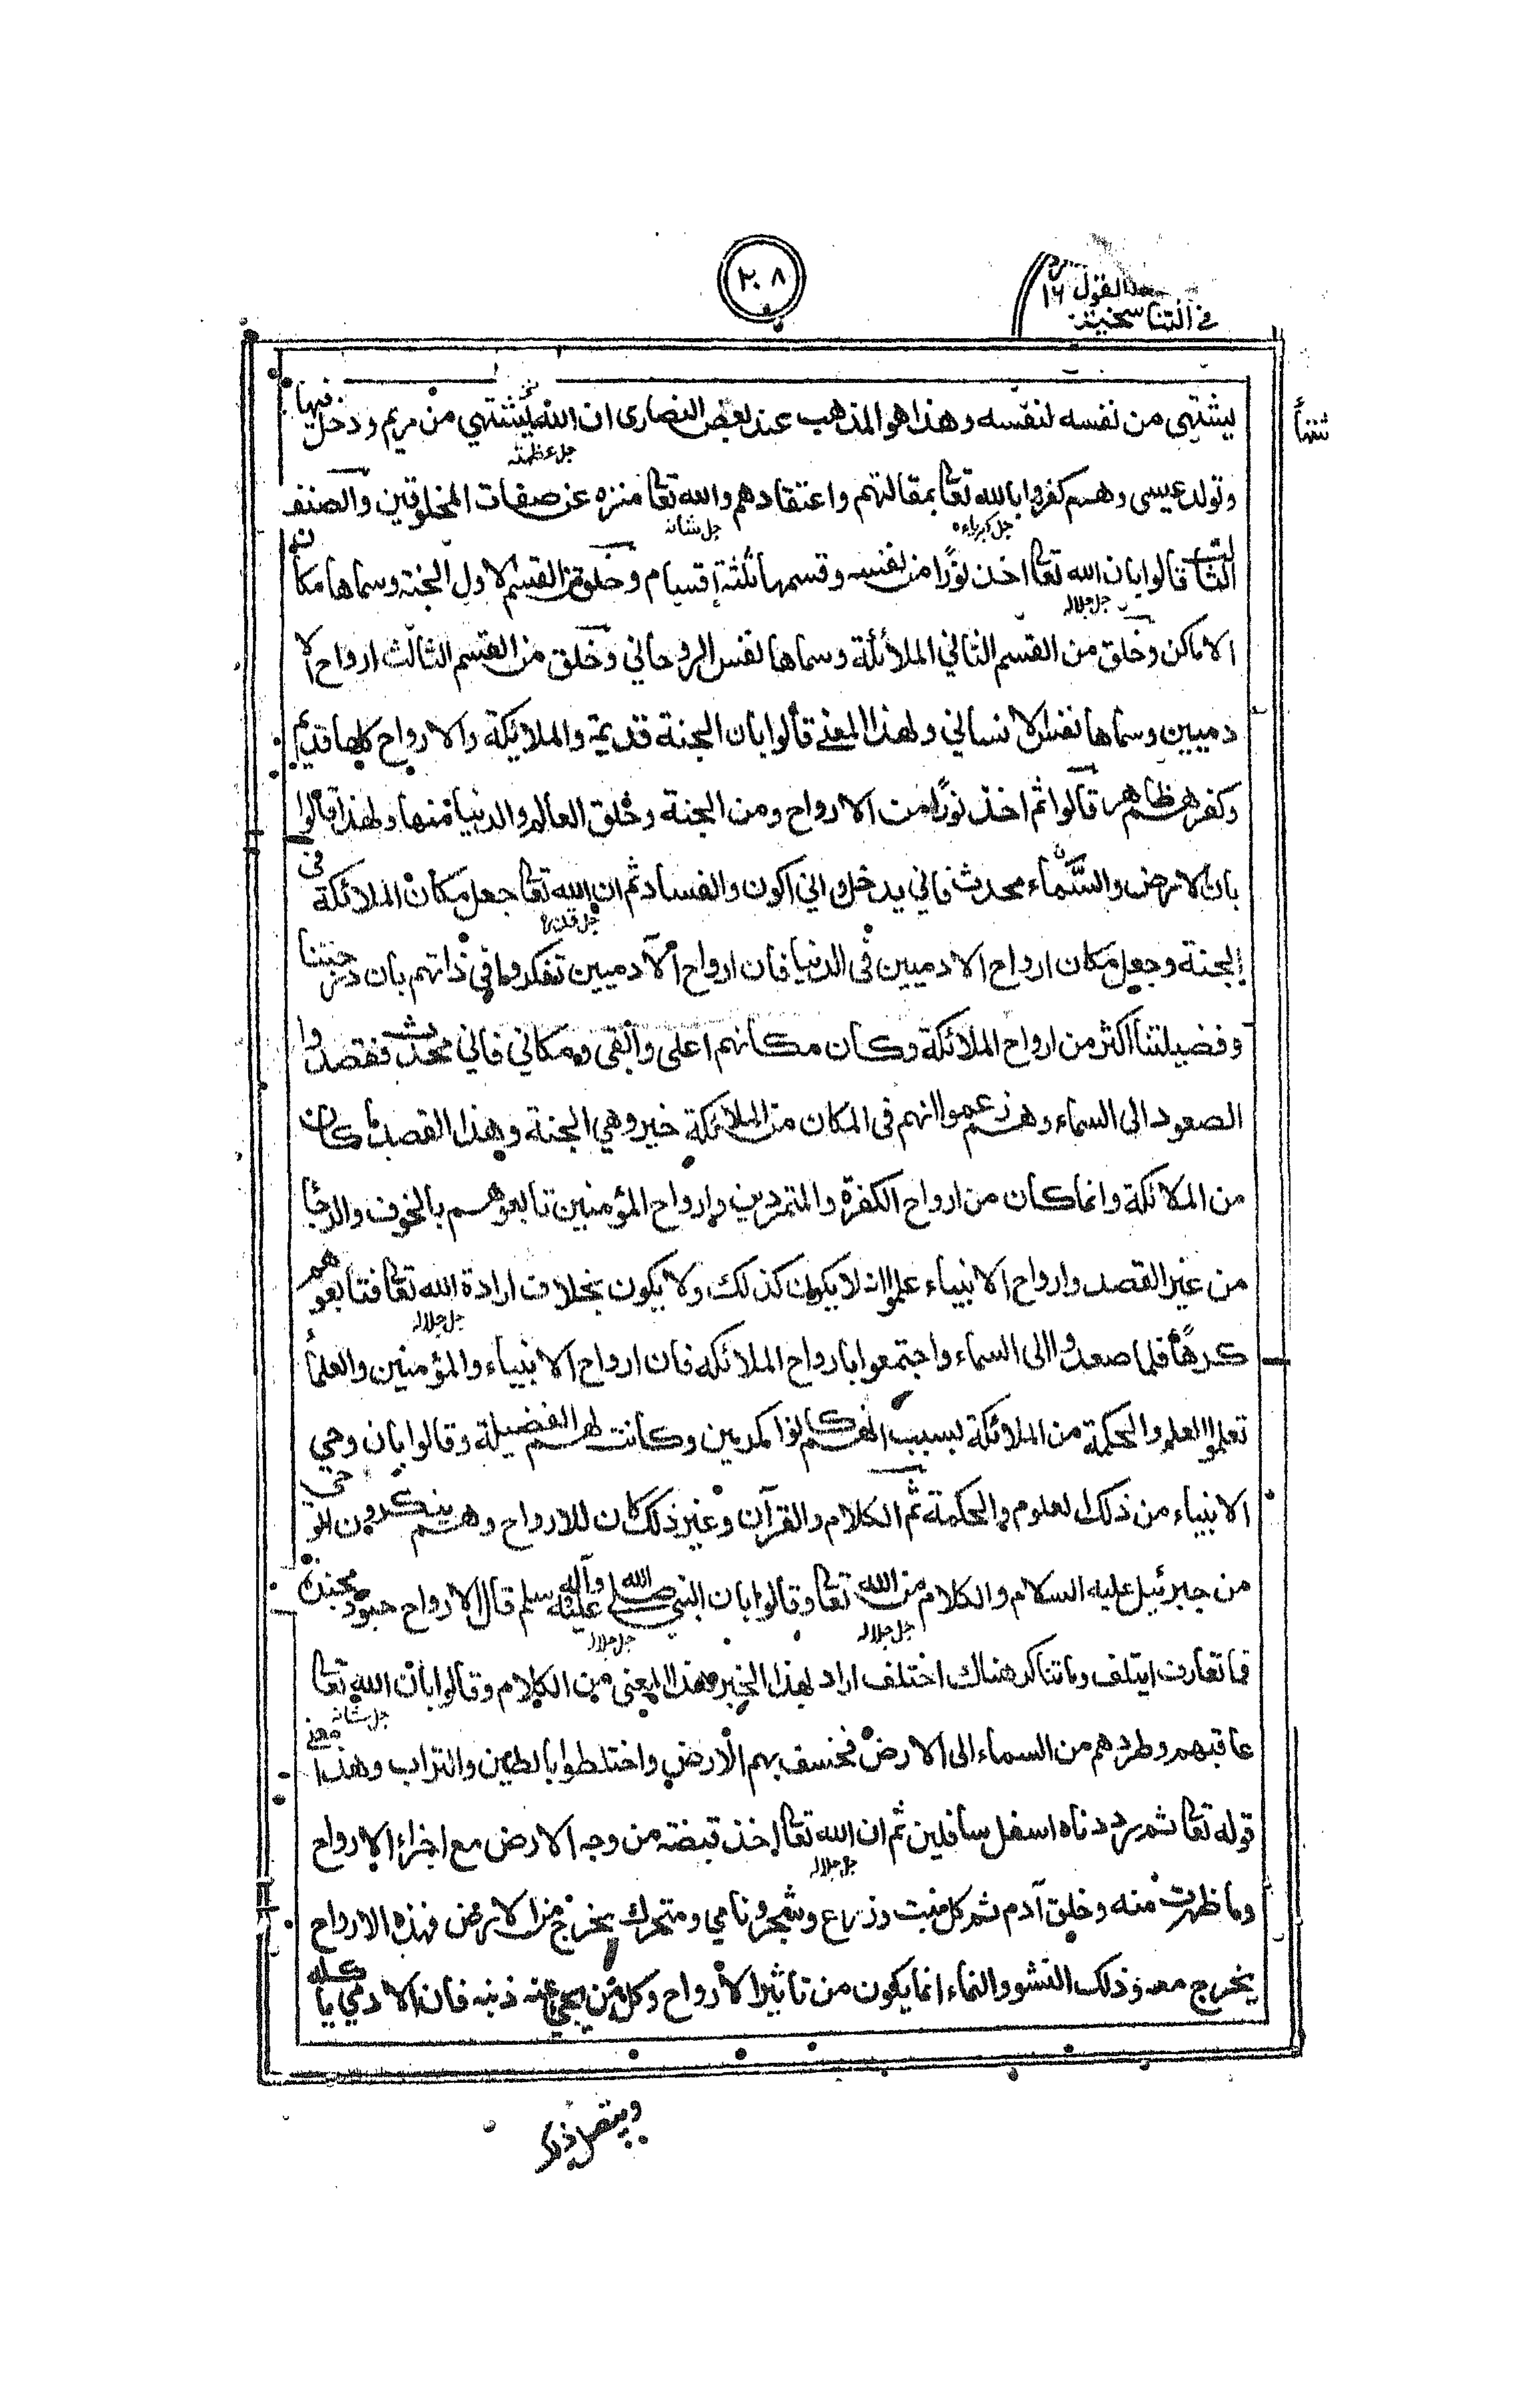 ٢٠٨
القول ١٦
في التناسخية
يشتهى من نفسه لنفسه وهذا هو المذهب عند بعض النصارى ان الله يشتهي من مريم ودخل فيها
جل عظمته
وتولد عيسى وهم كفروا بالله تعا بمقالتهم واعتقادهم والله تعا منزه عن صفات المخلوقين والصنف
جل كبرياءه جل شانه
الثالث قالوا بان الله تعا اخذ نورًا من نفسه وقسمها ثلثة اقسام وخلق من القسم الاول الجنة وسماها مكان
جل جلاله
الاماكن وخلق من القسم الثاني الملائكة وسماها نفس الروحاني وخلق من القسم الثالث ارواح الا
دميين وسماها نفس الانساني ولهذا المعنى قالوا بان الجنة قديمة والملائكة والارواح كلها قديم
وكفرهم ظاهر قالوا ثم اخذ نورًا من الارواح ومن الجنة وخلق العالم والدنيا منها ولهذا قالوا
بان الارض والسماء محدث فاني يدخل اني اكون والفساد ثم ان الله تعا جعل مكان الملائكة فى
جل قدره
الجنة وجعل مكان ارواح الادميين فى الدنيا فان ارواح الآدميين تفكروا في ذاتهم بان درجتنا
وفضيلتنا اكثر من ارواح الملائكة وكان مكانهم اعلى وابقى ومكاني فاني محدث فقصدوا
الصعود الى السماء وهم زعموا انهم فى المكان من الملائكة خير وهي الجنة وهذا القصد ما كان
من الملائكة وانما كان من ارواح الكفرة والمتمردين وارواح المؤمنين تابعوهم بالخوف والرجا
من غير القصد وارواح الانبياء علموا انه لا يكون كذلك ولا يكون بخلاف ارادة الله تعا فتابعوهم
جل جلاله
كرهًا فلما صعدوا الى السماء واجتمعوا بارواح الملائكة فان ارواح الانبياء والمؤمنين والعلماء
تعلموا العلم والحكمة من الملائكة بسبب انهم كانوا مكرمين وكانت لهم الفضيلة وقالوا بان وحي
الانبياء من ذلك العلوم والحكمة ثم الكلام والقرآن وغير ذلك كان للارواح وهم ينكرون الوحي
من جبرئيل عليه السلام والكلام من الله تعا وقالوا بان النبي صلى الله عليه وآله وسلم قال الارواح جنود مجندة
جل جلاله جل جلاله
فما تعارف ايتلف وما تناكر هناك اختلف اراد بهذا الخبر هذا المعنى من الكلام وقالوا بان الله تعا
جل شانه
عاقبهم وطردهم من السماء الى الارض فخسف بهم الارض واختلطوا بالطين والتراب وهذا معنى
قوله تعا ثم رددناه اسفل سافلين ثم ان الله تعا اخذ قبضة من وجه الارض مع اجزاء الارواح
جل جلاله
وما ظهرت منه وخلق آدم ثم كل منبت وزراع وشجر ونامي ومتحرك يخرج من الارض فهذه الارواح
يخرج معه وذلك النشو والنماء انما يكون من تاثير الارواح وكل من يجي عنه ذنبه فان الادمي ياكله